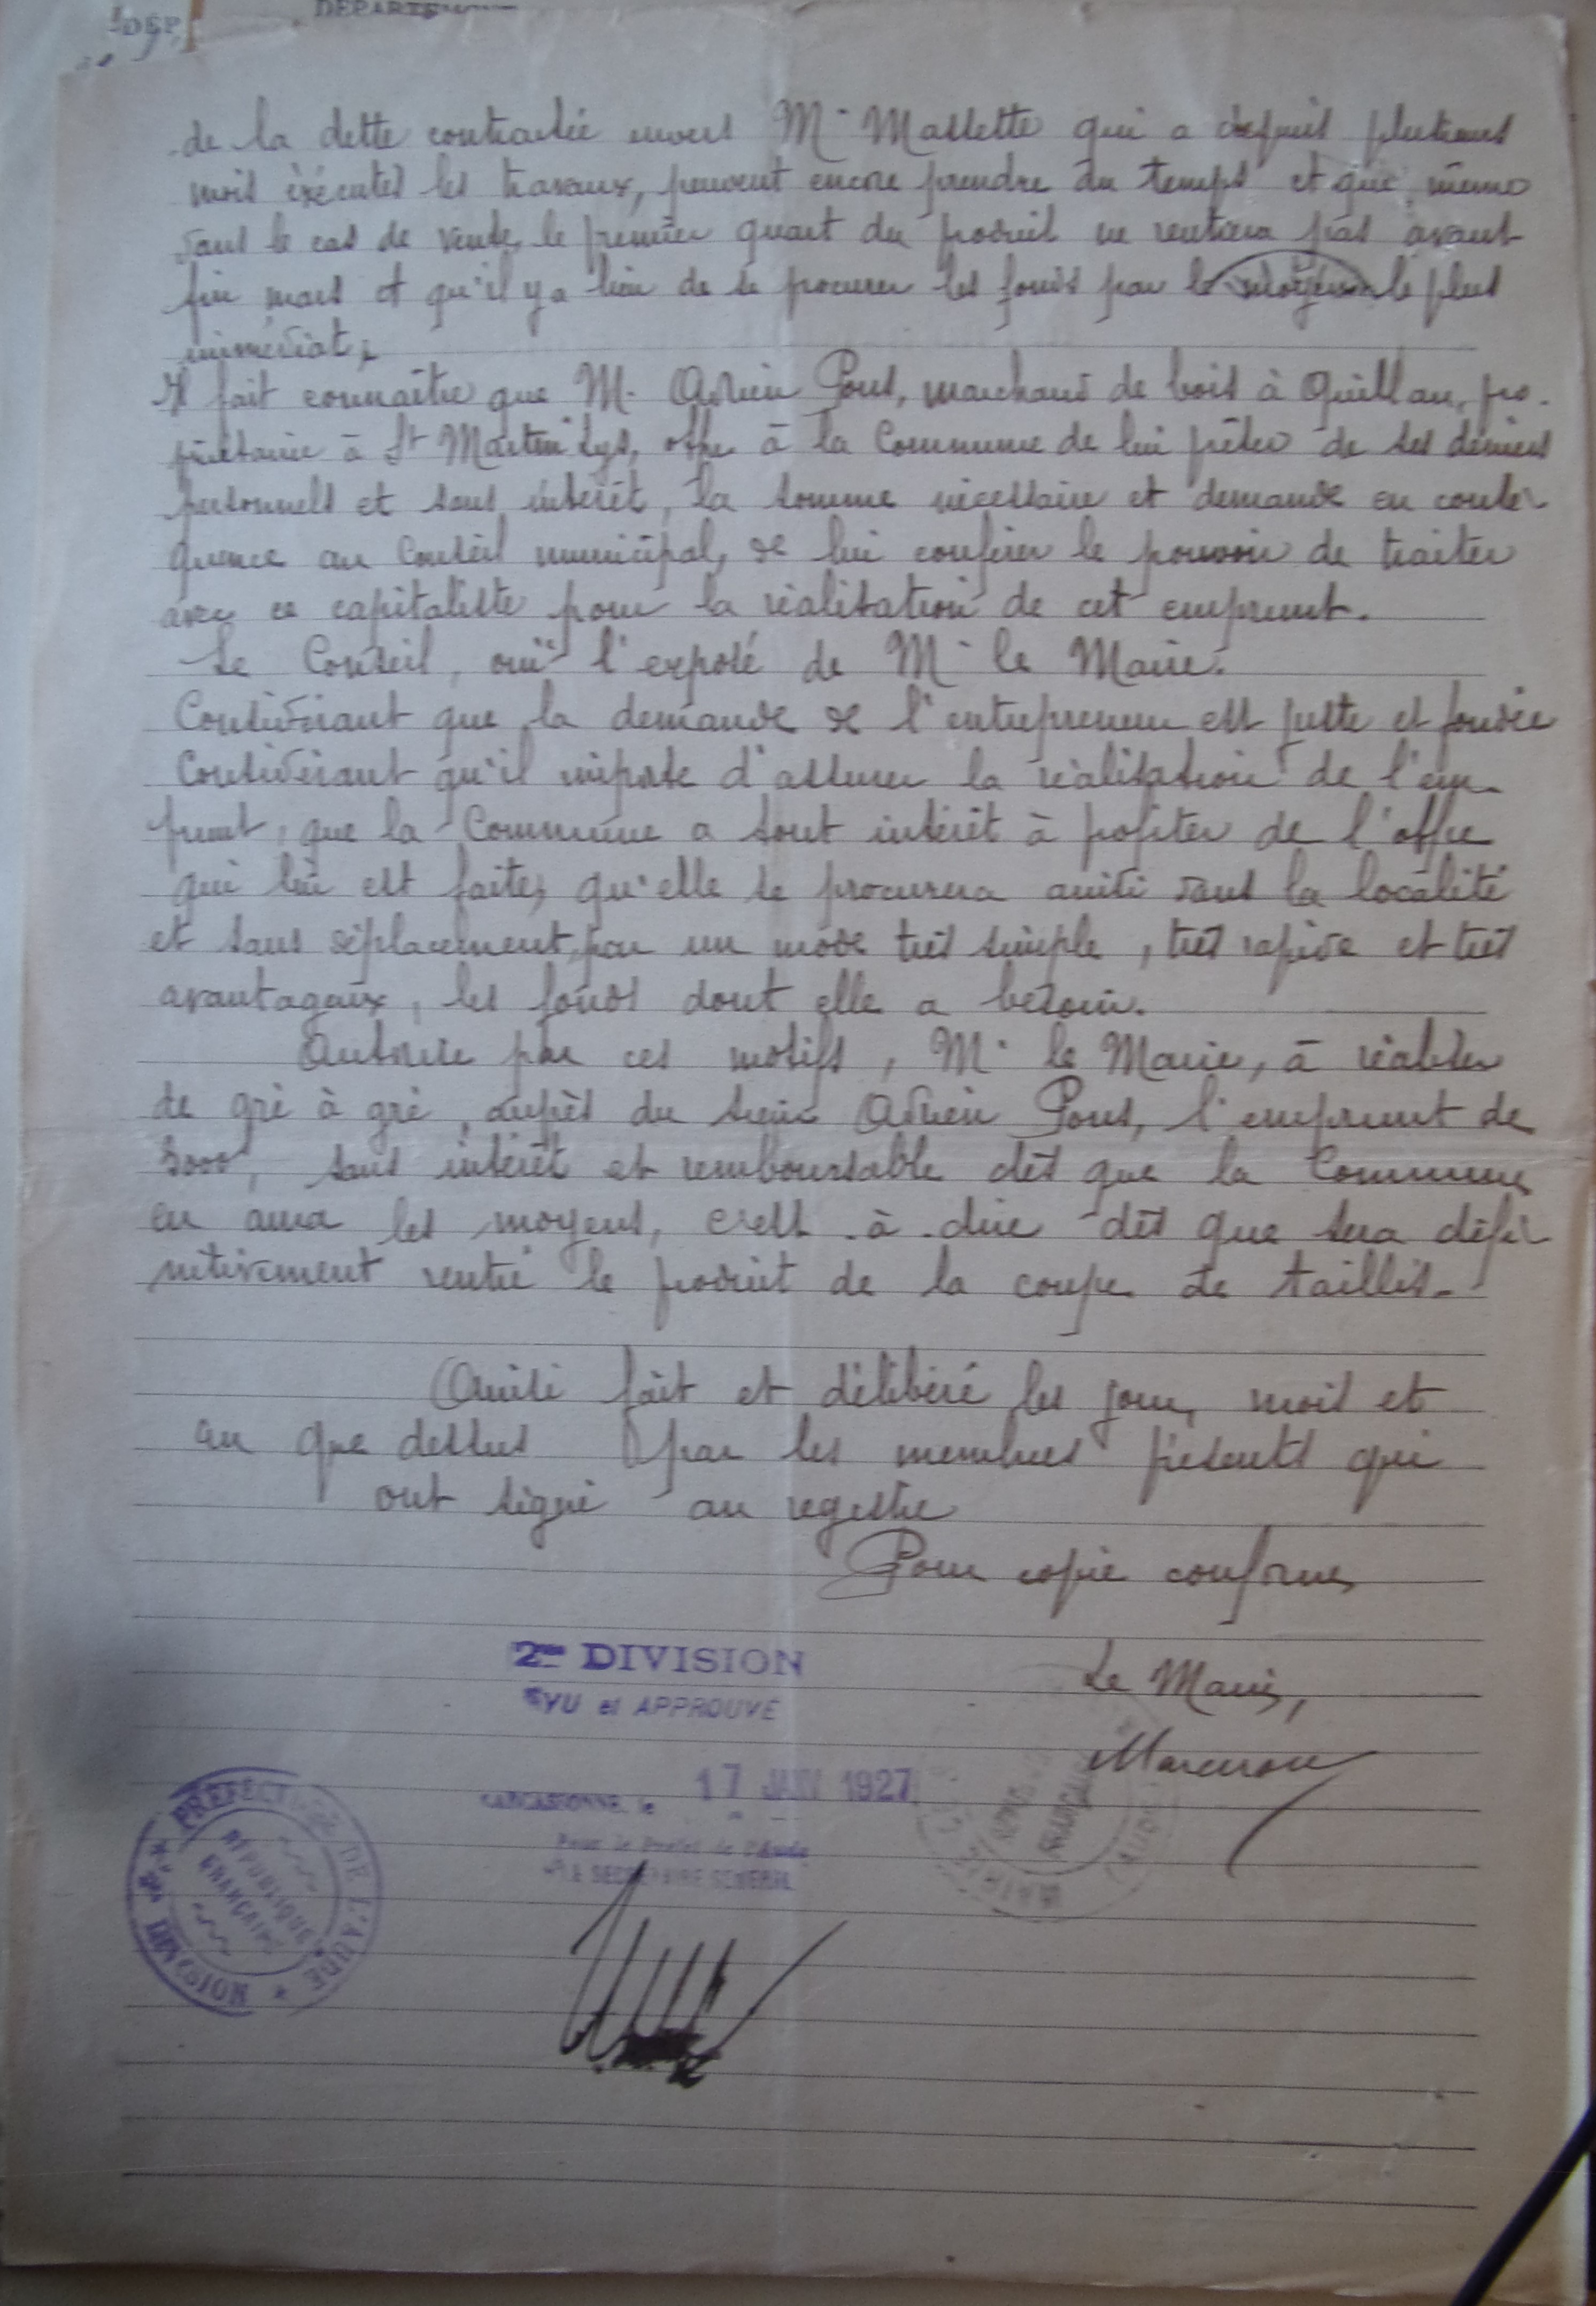 DÉPARTE
DÉP
de la dette contractée envers M. Massette qui a depuis plusieurs
mois éxécutés les travaux, peuvent encore prendre du temps et que, même
dans le cas de vente, le premier quart du produit ne rentrera pas avant
fin mars et qu'il y a lieu de se procurer les fonds par le moyen le plus
immédiat,
Il fait connaître que M. Adrien Pons, marchand de bois à Quillan, pro-
priétaire à St Martin Lys, offre à la Commune de lui prêter de ses deniers
personnels et sans intérêt, la somme nécessaire et demande en consé-
quence au Conseil municipal, de lui conférer le pouvoir de traiter
avec ce capitaliste pour la réalisation de cet emprunt.
Le Conseil, ouï l'exposé de M. le Maire.
Considérant que la demande de l'entrepreneur est juste et fondée
Considérant qu'il importe d'assurer la réalisation de l'em-
prunt, que la Commune a tout intérêt à profiter de l'offre
qui lui est faite, qu'elle se procurera ainsi dans la localité
et sans déplacement, par un mode très simple, très rapide et très
avantageux, les fonds dont elle a besoin.
Autorise par ces motifs, M. le Maire, à réaliser
de gré à gré, auprès du sieur Adrien Pons, l'emprunt de
sans intérêt et remboursable dès que la Commune
en aura les moyens, c'est-à-dire dès que sera défi-
nitivement rentré le produit de la coupe de taillis.
Ainsi fait et délibéré les jour, mois et
an que dessus par les membres présents qui
ont signé au registre
Pour copie conforme
Le Maire,
2me DIVISION
VU et APPROUVÉ
CARCASSONNE, le 17 JANV 1927
Pour le Préfet de l'Aude
LE SECRÉTAIRE GÉNÉRAL
PRÉFECTURE DE L'AUDE * DIVISION
RÉPUBLIQUE
FRANÇAISE
MAIRIE
FRANÇAISE
(AUDE)